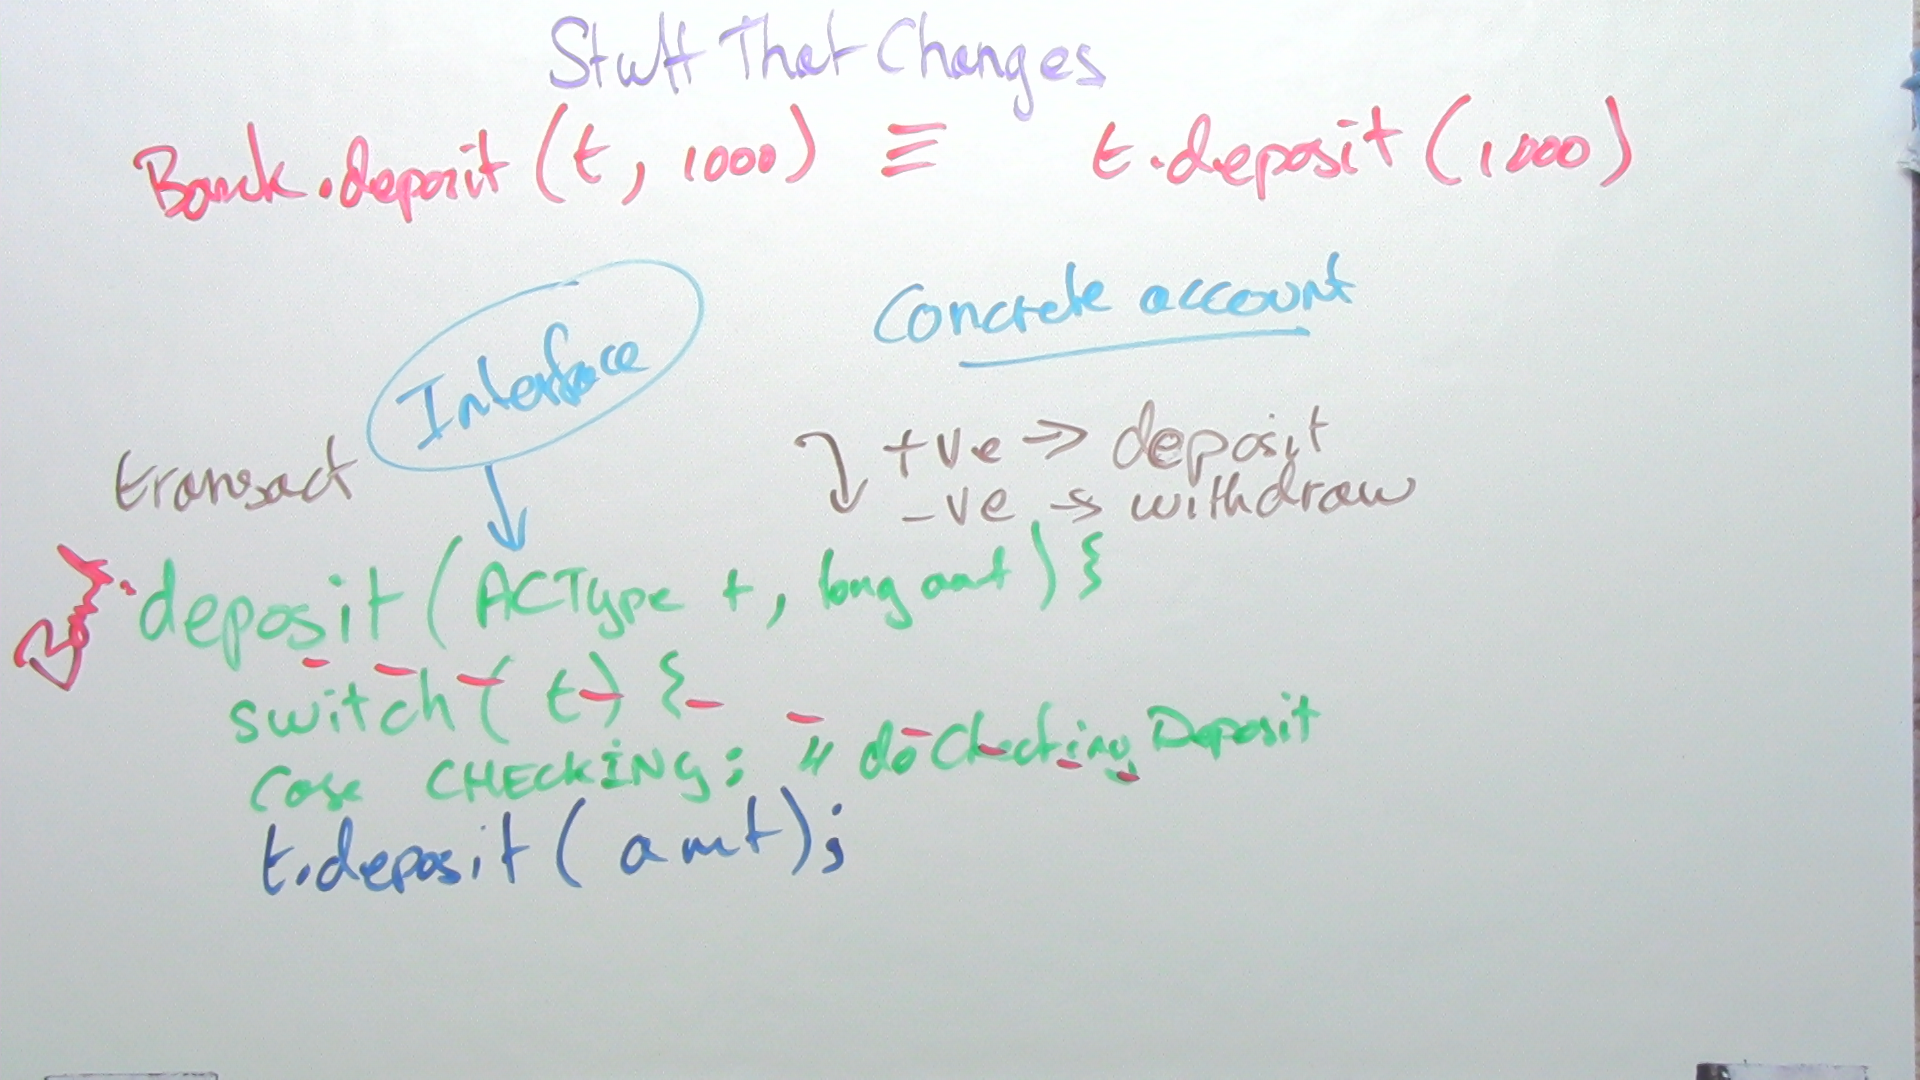 Stuff That Changes
Bank.deposit(t, 1000) ≡ t.deposit(1000)
Interface
Concrete account
transact
+ve → deposit
-ve → withdraw
Bank.
deposit(ACType t, long amt) {
switch(t) {
case CHECKING: // doCheckingDeposit
t.deposit(amt);